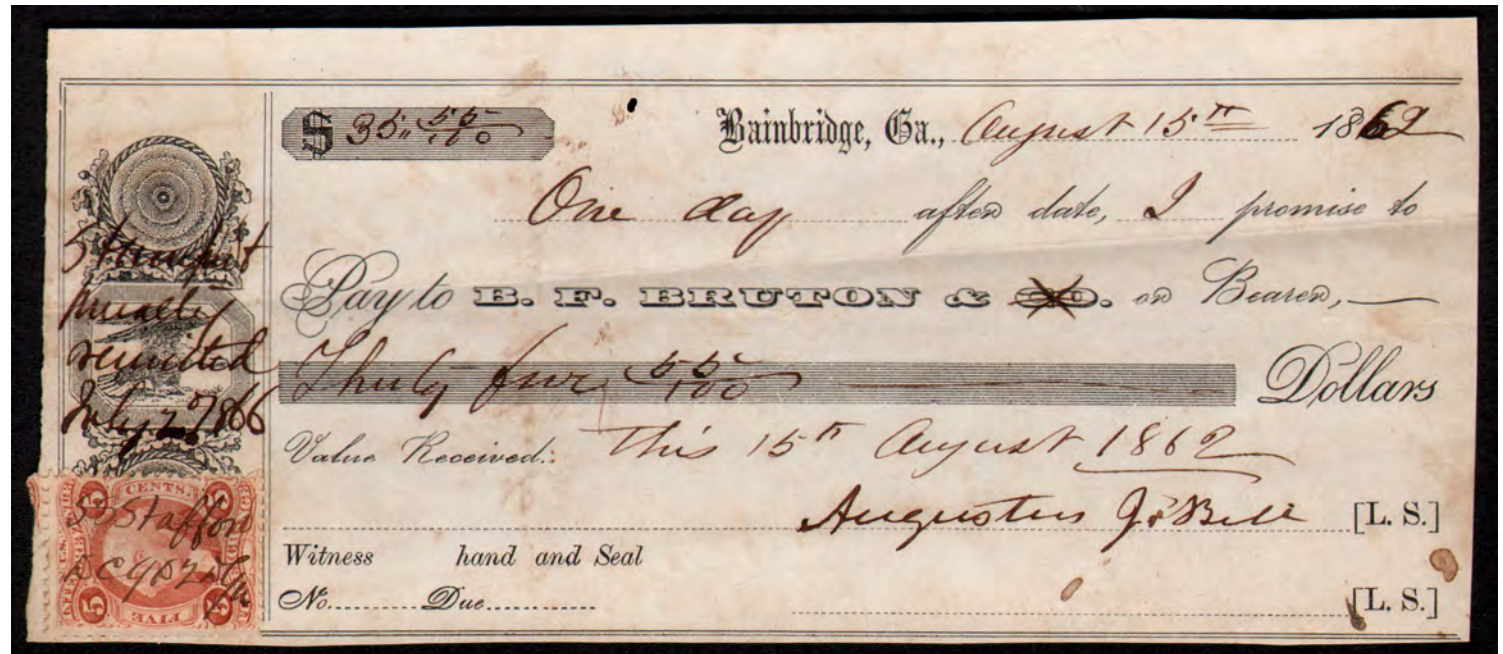 $ 35. 55/100
Bainbridge, Ga., August 15th 1862
One day after date, I promise to
Pay to B. F. BRUTON & CO. or Bearer,
Thirty five 55/100 Dollars
Value Received. This 15th August 1862
Augustus J. Bell [L. S.]
Witness hand and Seal
No. Due [L. S.]
Stamped
penalty
remitted
July 27 1866
5 CENTS. 5
INTER. REV.
S D Stafford
D C
5 FIVE 5